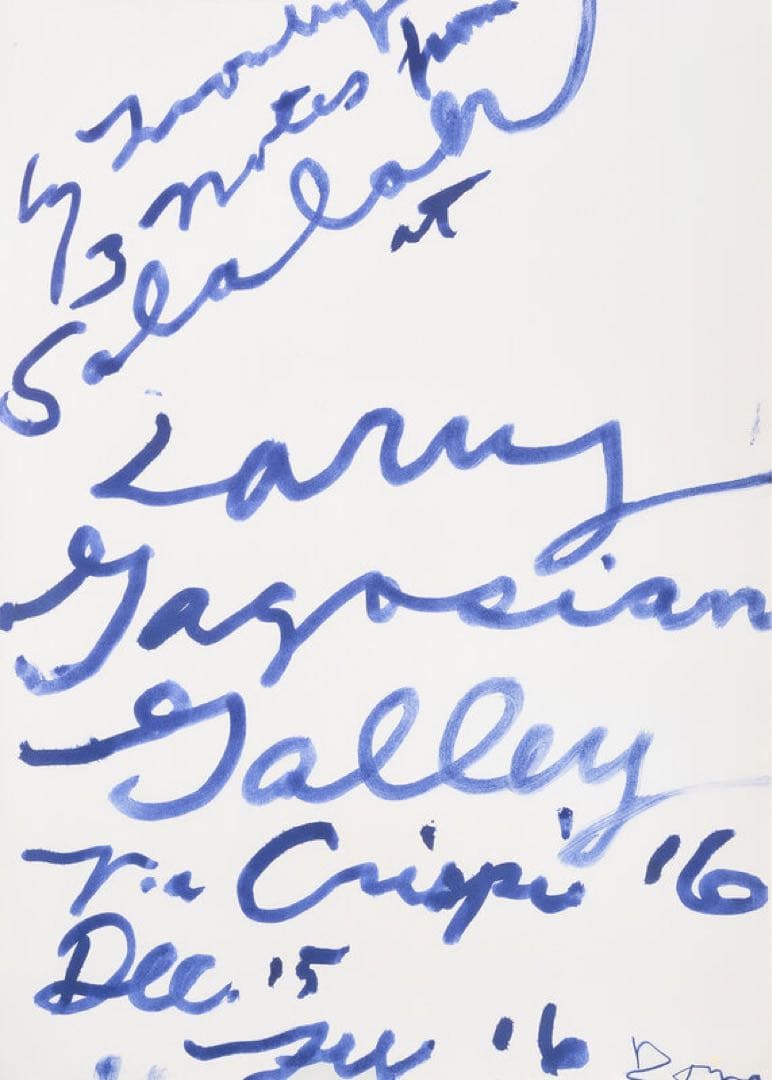 Cy Twombly
3 notes from
Salalah
at
Larry
Gagosian
Gallery
Via Crispi '16
Dec. '15
'16